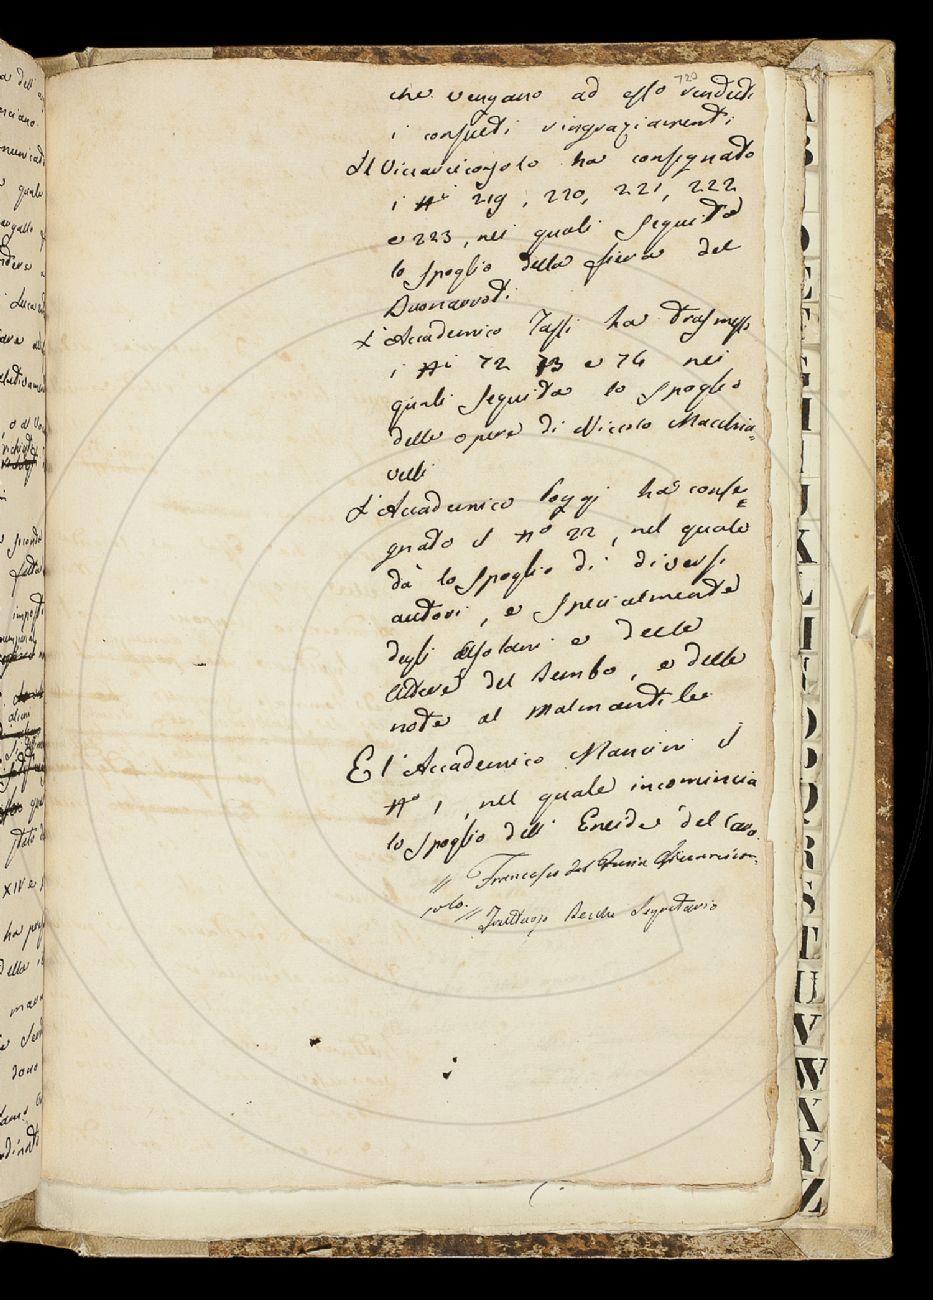 720
che vengano ad esso renduti
i consueti ringraziamenti
Il Vicearciconsolo ha consegnato
i Nⁱ 219, 220, 221, 222
e 223, nei quali seguita
lo spoglio della fiera del
Buonarroti
L'Accademico Tassi ha trasmesso
i Nⁱ 72 73 e 74 nei
quali seguita lo spoglio
delle opere di Niccolo Macchia=
velli
L'Accademico Poggi ha conse=
gnato il Nº 22, nel quale
dà lo spoglio di diversi
autori, e specialmente
degli Asolani e delle
lettere del Bembo, e delle
note al Malmantile
E l'Accademico Mancini il
Nº 1, nel quale incomincia
lo spoglio dell' Eneide del Caro.
// Francesco del Furia Vicearicon-
solo.
// Fruttuoso Becchi Segretario
B
D
E
F
G
H
I
J
K
L
M
N
O
P
Q
R
S
T
U
V
W
X
Y
Z